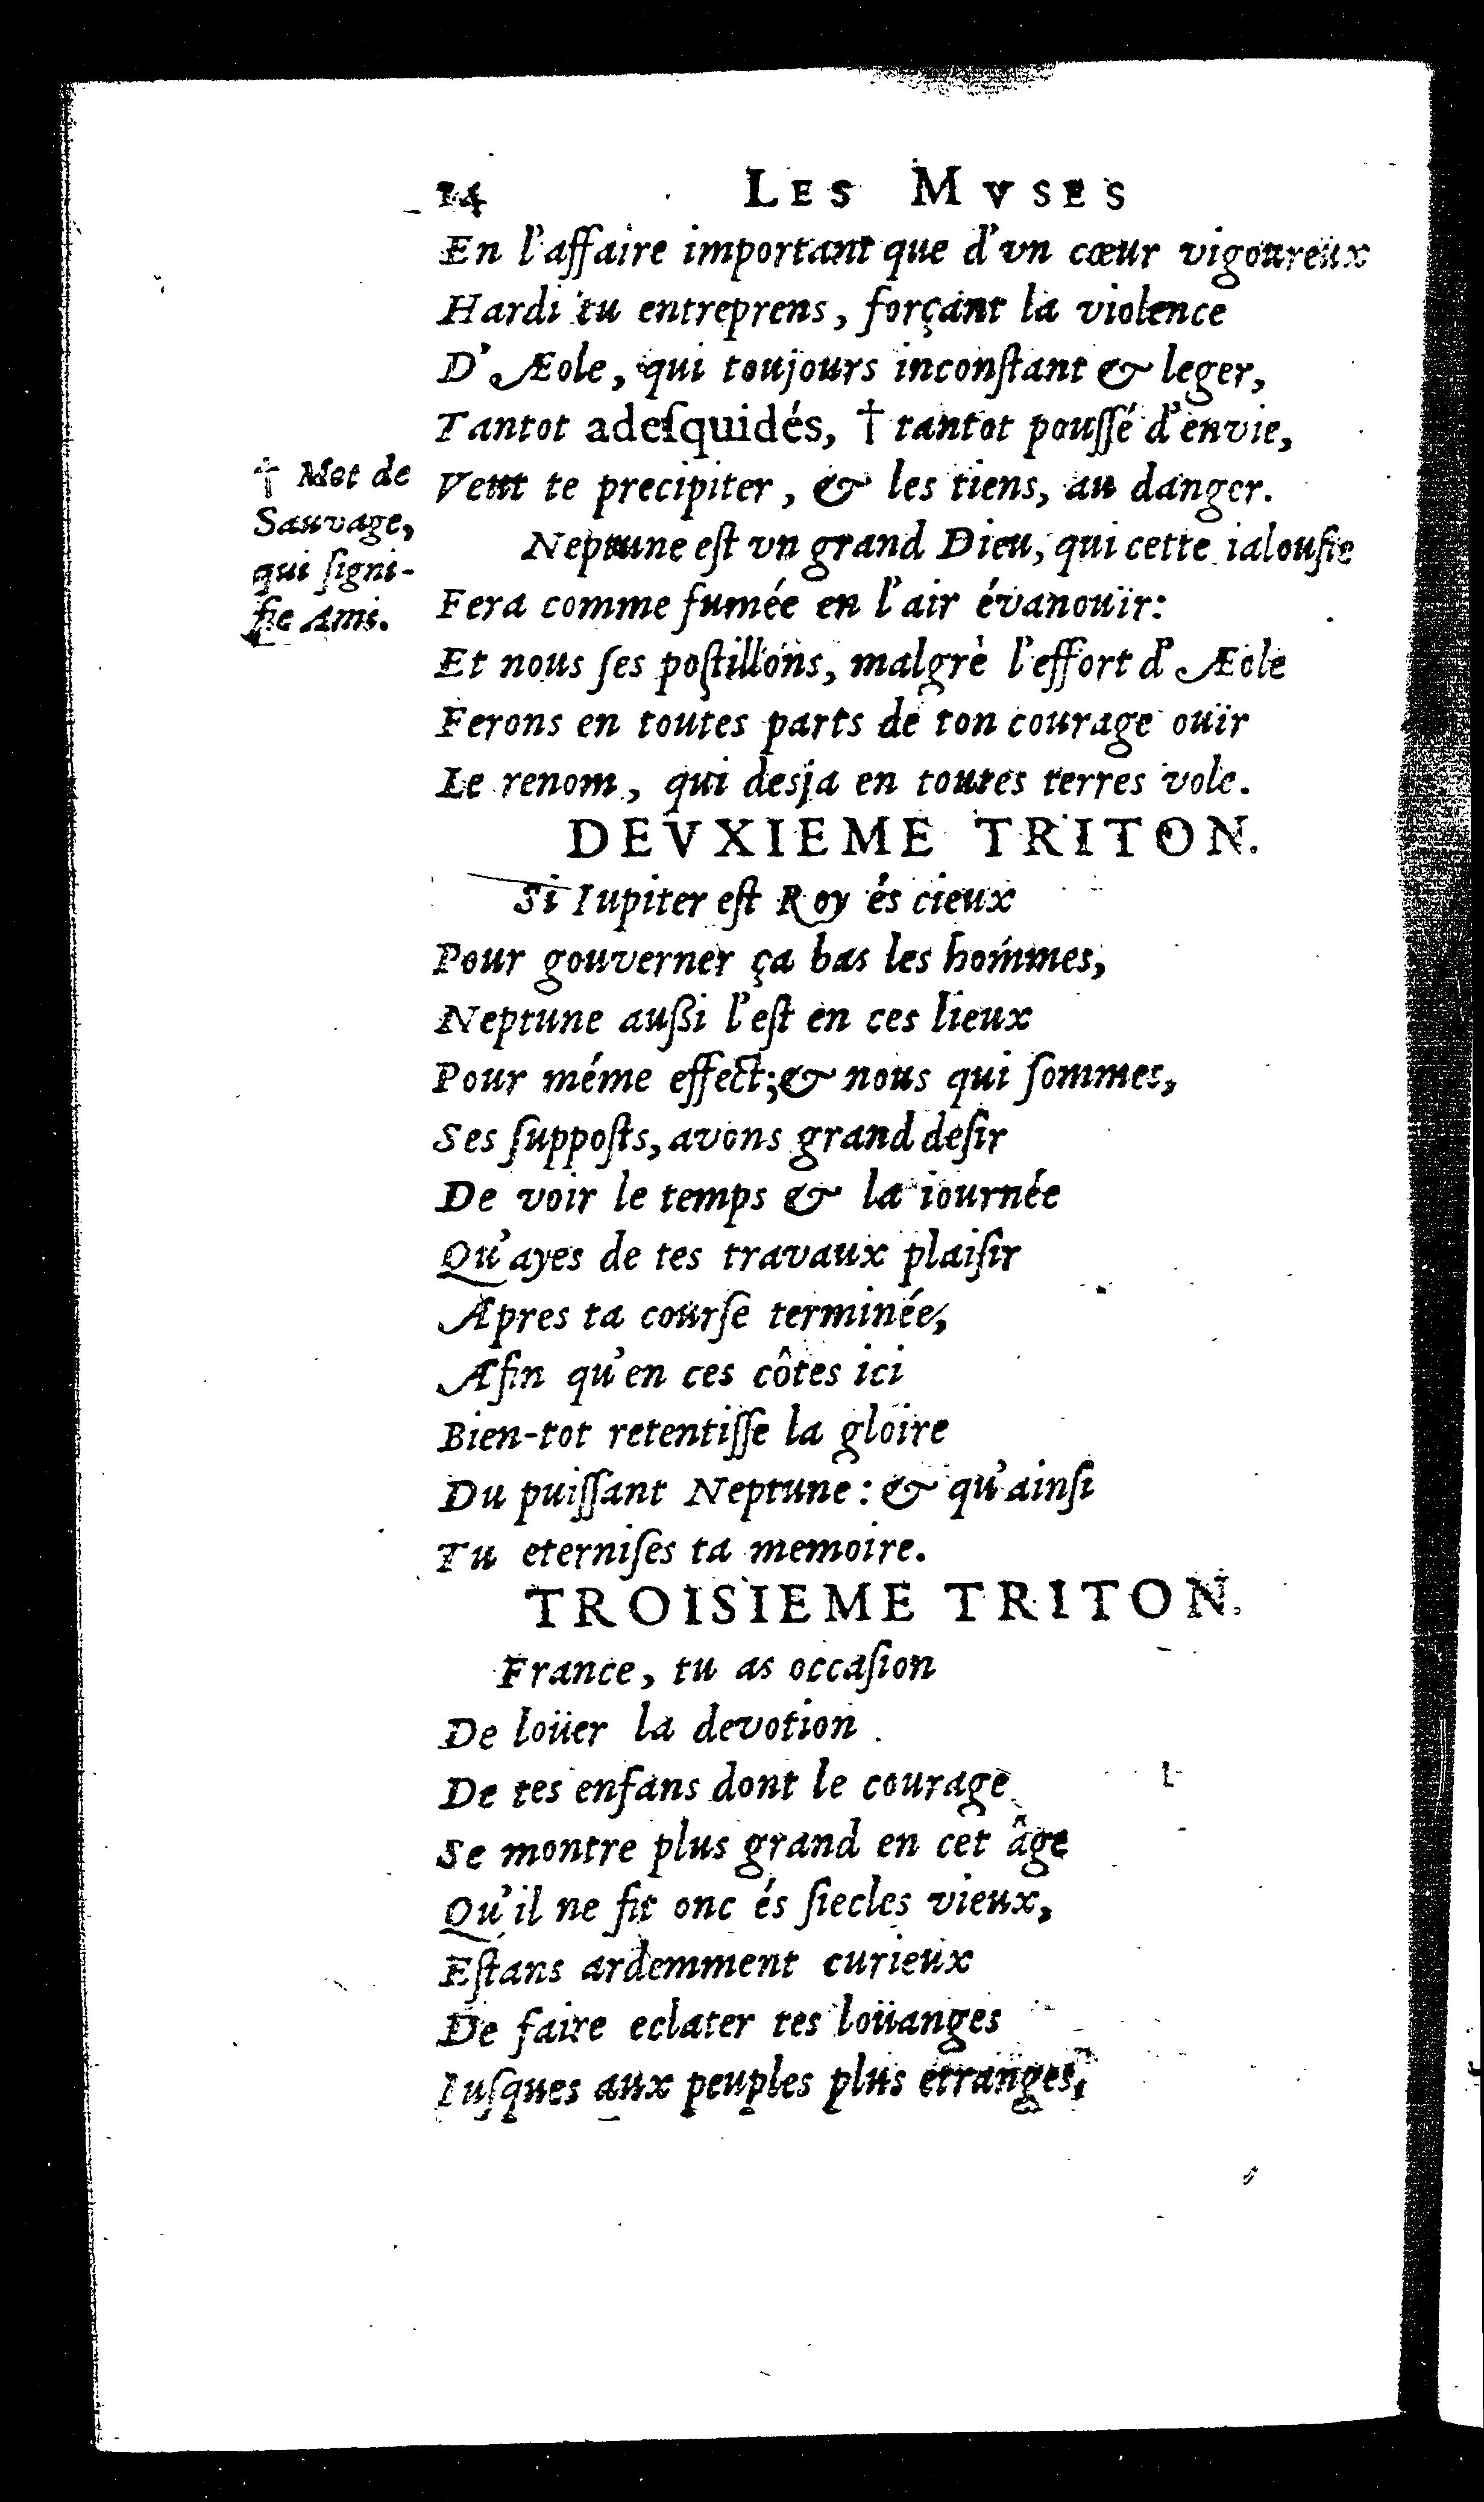 14 LES MVSES
En l'affaire important que d'vn cœur vigoureux
Hardi tu entreprens, forçant la violence
D'Æole, qui toujours inconſtant & leger,
Tantot adeſquidés, † tantot pouſſé d'envie,
† Mot de
Sauvage,
qui ſigni-
fie Ami.
Veut te precipiter, & les tiens, au danger.
Neptune eſt vn grand Dieu, qui cette ialouſie
Fera comme fumée en l'air évanouïr:
Et nous ſes poſtillons, malgrè l'effort d'Æole
Ferons en toutes parts de ton courage ouïr
Le renom, qui desja en toutes terres vole.
DEVXIEME TRITON.
Si Iupiter eſt Roy és cieux
Pour gouverner ça bas les hommes,
Neptune außi l'eſt en ces lieux
Pour méme effect; & nous qui ſommes,
Ses ſuppoſts, avons grand deſir
De voir le temps & la iournée
Qu'ayes de tes travaux plaiſir
Apres ta courſe terminée,
Afin qu'en ces côtes ici
Bien-tot retentiſſe la gloire
Du puiſſant Neptune: & qu'ainſi
Tu eterniſes ta memoire.
TROISIEME TRITON.
France, tu as occaſion
De loüer la devotion
De tes enfans dont le courage
Se montre plus grand en cet âge
Qu'il ne fit onc és ſiecles vieux,
Eſtans ardemment curieux
De faire eclater tes loüanges
Iuſques aux peuples plus etranges,